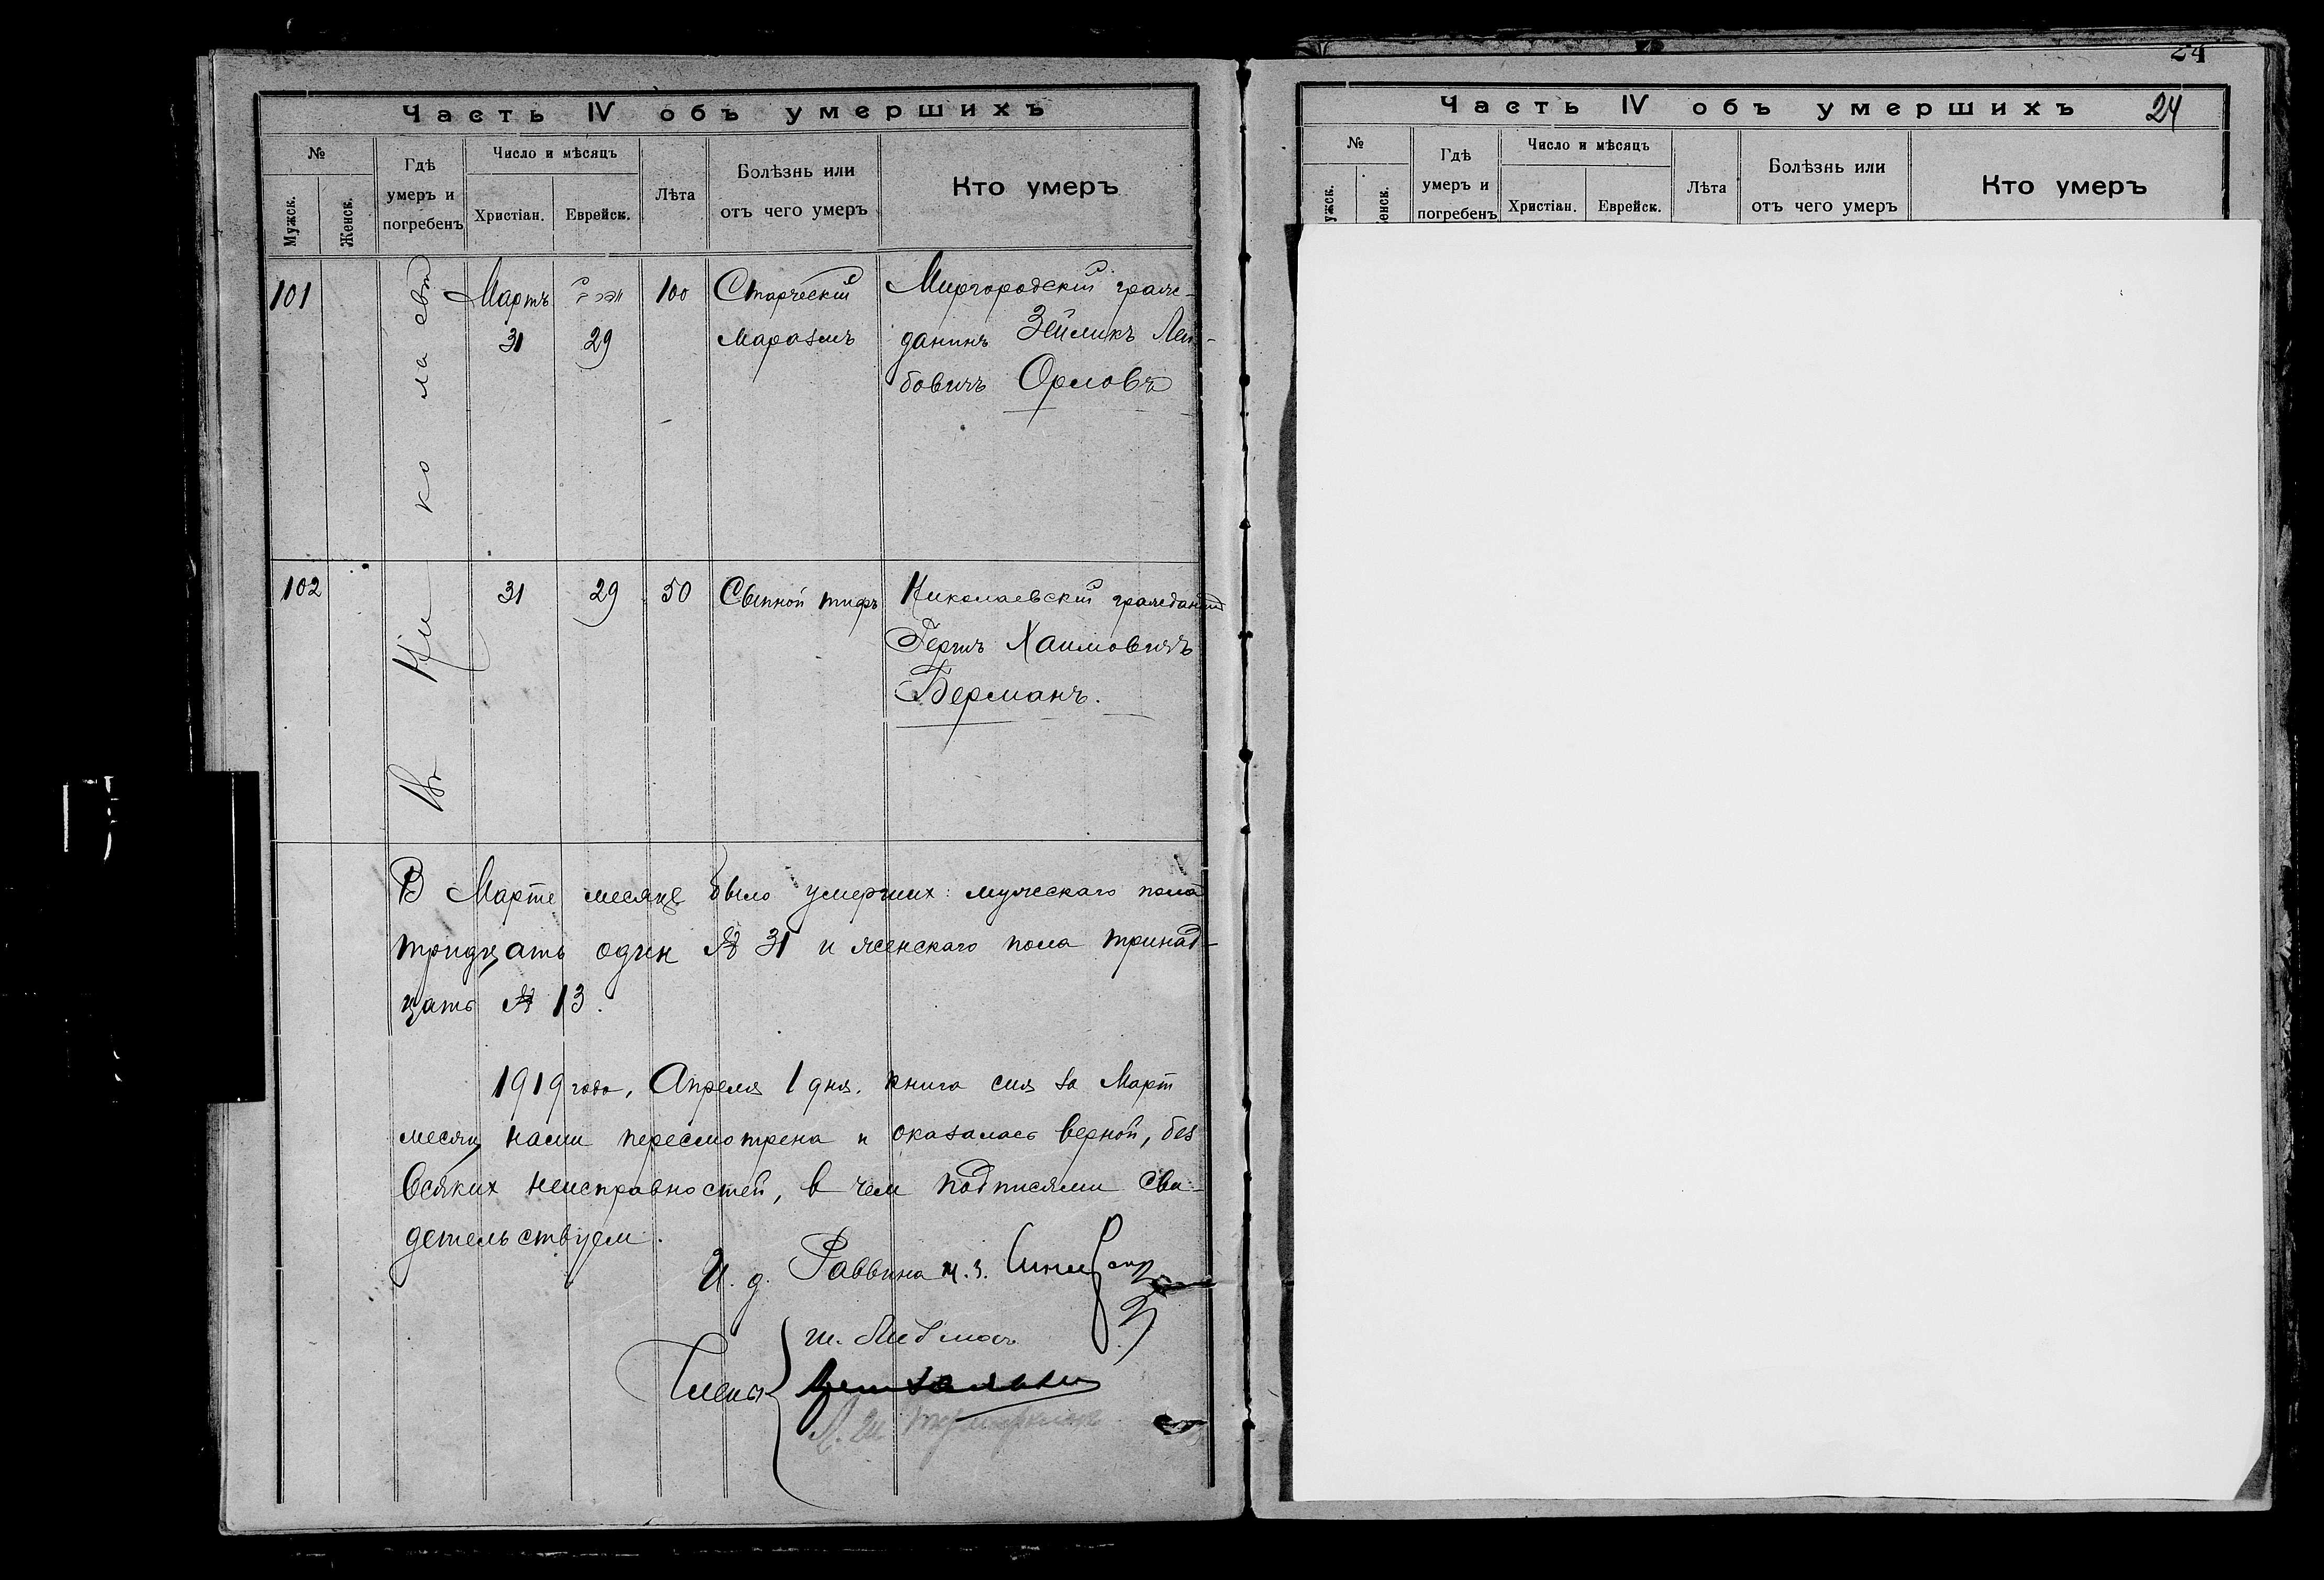 Часть IV объ умершихъ
№
Мужск.
Женск.
Гдѣ
умеръ и
погребенъ
Число и мѣсяцъ
Христіан.
Еврейск.
Лѣта
Болѣзнь или
отъ чего умеръ
Кто умеръ
Въ Николаевѣ
101
Мартъ
31
29
100
Старческій
маразмъ
Миргородскій граж-
данинъ Зейликъ Лей-
бовичъ Орловъ
102
31
29
50
Сыпной тифъ
Николаевскій гражданинъ
Гершъ Хаимовичъ
Берманъ.
В Марте месяце было умерших: мужескаго пола
тридцать один № 31 и женскаго пола тринад-
цать № 13.
1919 года, Апреля 1 дня. книга сия за Март
месяц нами пересмотрена и оказалась верной, без
всяких неисправностей, в чем подписями сви-
детельствуем.
И. д. Раввина
Члены
24
Часть IV объ умершихъ 24
№
ужск.
енск.
Гдѣ
умеръ и
погребенъ
Число и мѣсяцъ
Христіан.
Еврейск.
Лѣта
Болѣзнь или
отъ чего умеръ
Кто умеръ